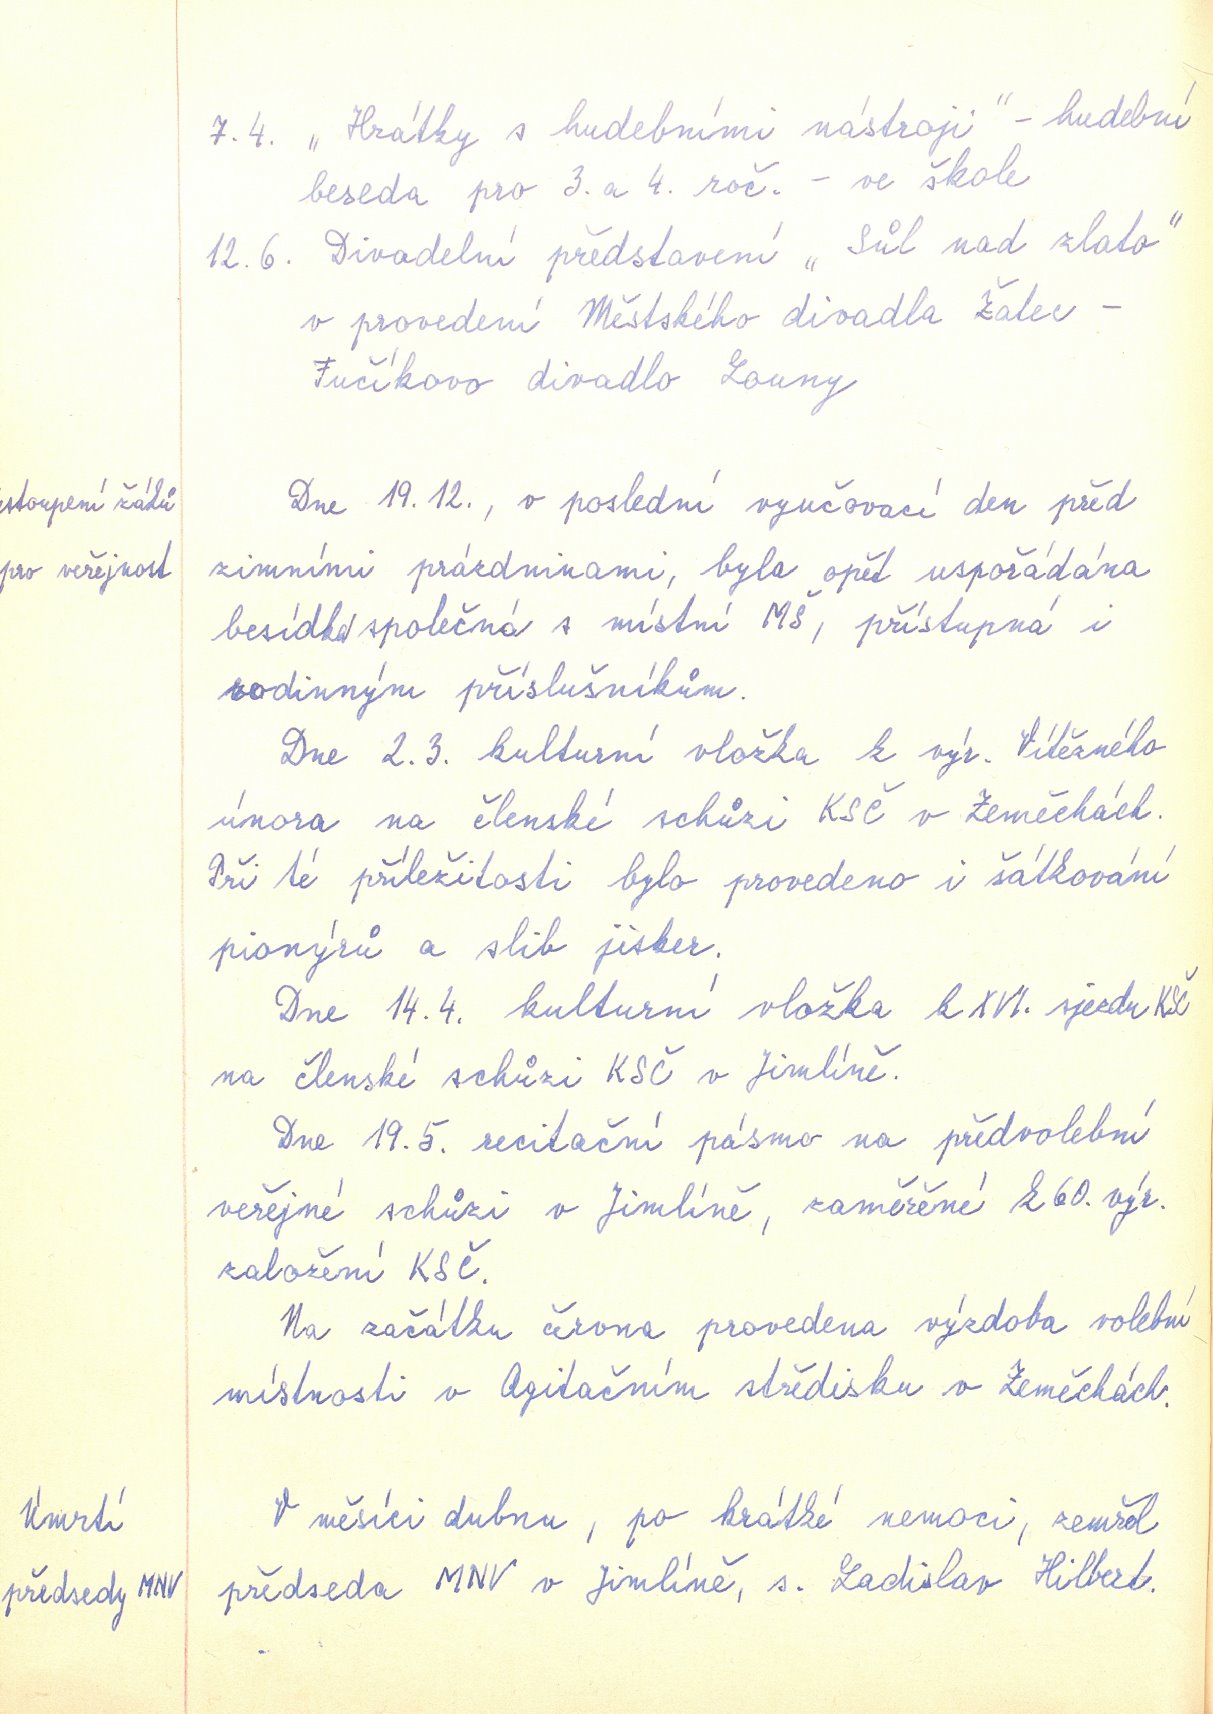 7. 4. „Hrátky s hudebními nástroji" - hudební
beseda pro 3. a 4. roč. - ve škole
12. 6. Divadelní představení „Sůl nad zlato"
v provedení Městského divadla Žatec -
Fučíkovo divadlo Louny
Dne 19. 12., v poslední vyučovací den před
pro veřejnost
zimními prázdninami, byla opět uspořádána
besídka společná s místní MŠ, přístupná i
rodinným příslušníkům.
Dne 2. 3. kulturní vložka k výr. Vítězného
února na členské schůzi KSČ v Zeměchách.
Při té příležitosti bylo provedeno i šátkování
pionýrů a slib jisker.
Dne 14. 4. kulturní vložka k XVI. sjezdu KSČ
na členské schůzi KSČ v Jimlíně.
Dne 19. 5. recitační pásmo na předvolební
veřejné schůzi v Jimlíně, zaměřené k 60. výr.
založení KSČ.
Na začátku června provedena výzdoba volební
místnosti v Agitačním středisku v Zeměchách.
Úmrtí
předsedy MNV
V měsíci dubnu, po krátké nemoci, zemřel
předseda MNV v Jimlíně, s. Ladislav Hilbert.